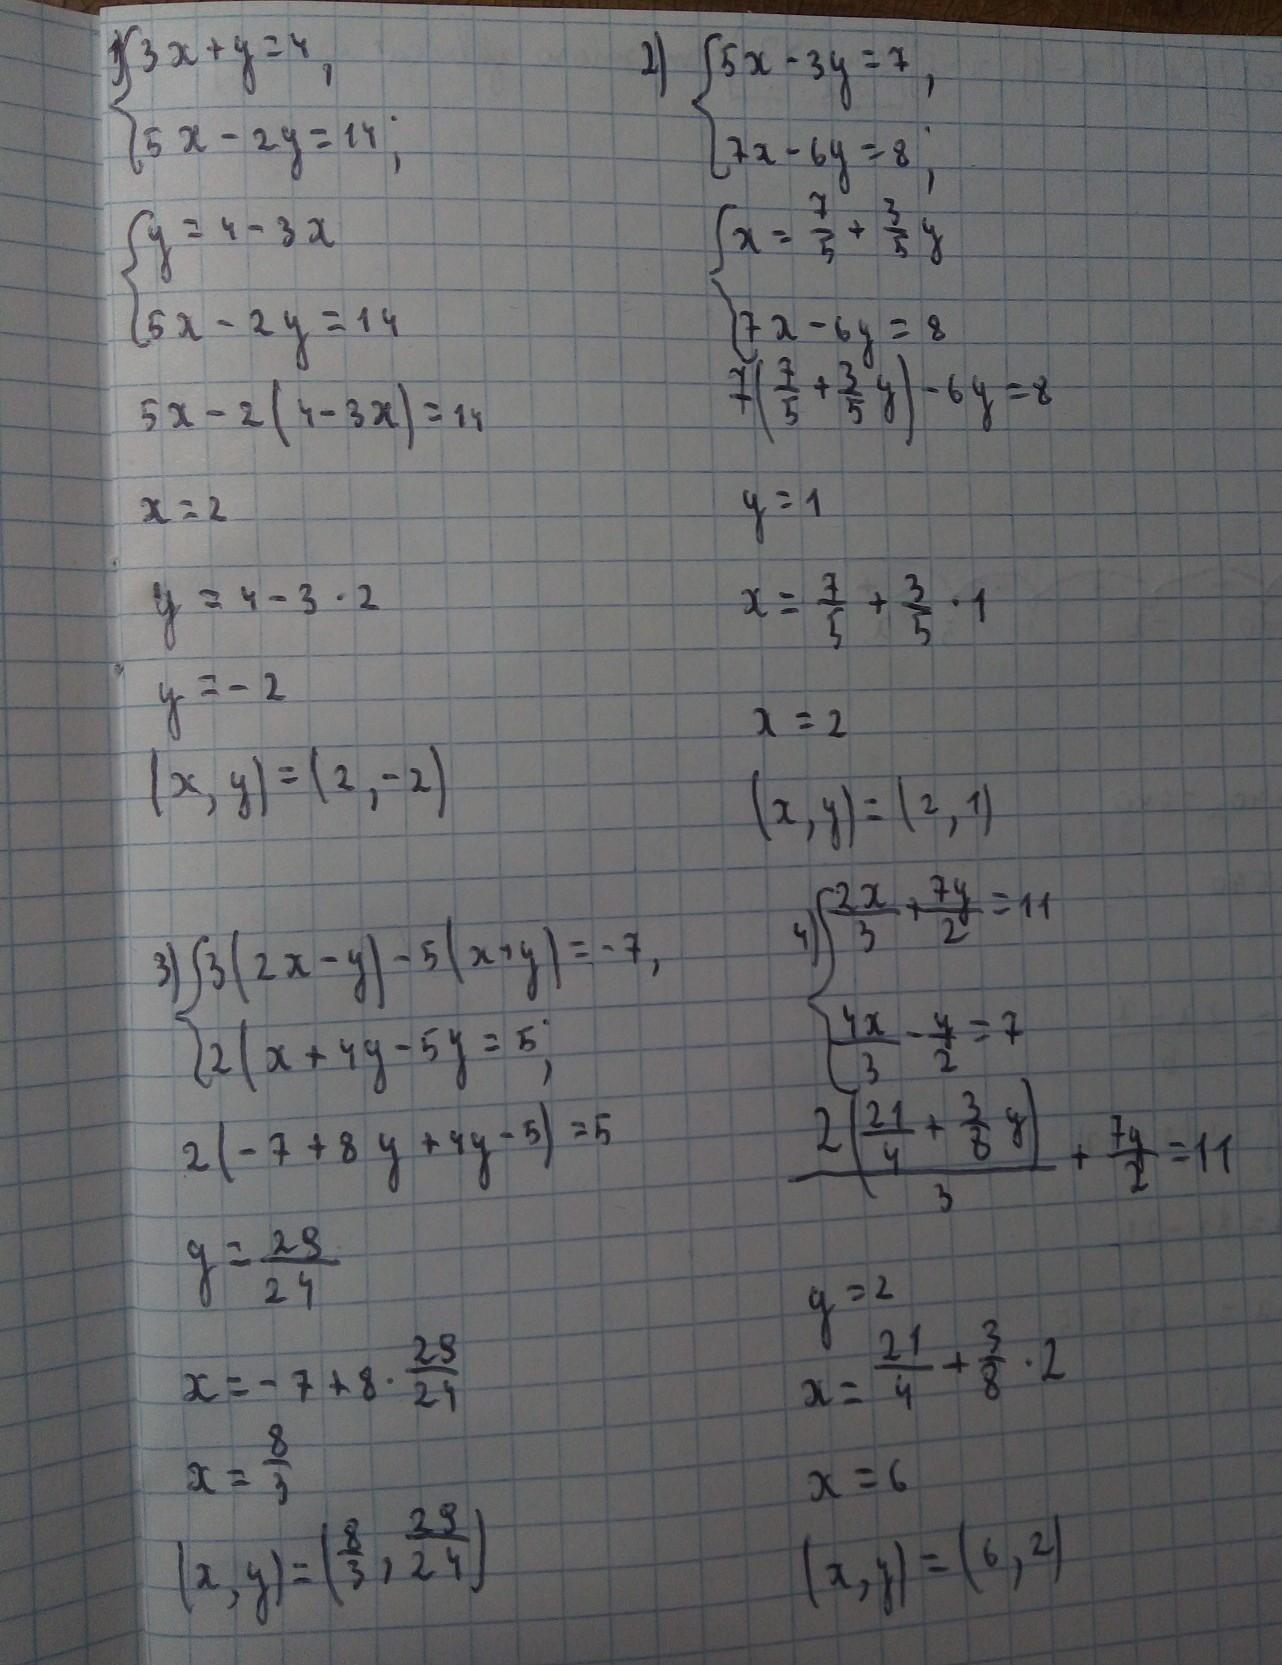 1) { 3x + y = 4,
5x - 2y = 14;
{ y = 4 - 3x
5x - 2y = 14
5x - 2(4 - 3x) = 14
x = 2
y = 4 - 3 · 2
y = -2
(x, y) = (2, -2)
2) { 5x - 3y = 7,
7x - 6y = 8;
{ x = 7/5 + 3/5 y
7x - 6y = 8
7(7/5 + 3/5 y) - 6y = 8
y = 1
x = 7/5 + 3/5 · 1
x = 2
(x, y) = (2, 1)
3) { 3(2x - y) - 5(x + y) = -7,
2(x + 4y - 5y = 5;
2(-7 + 8y + 4y - 5) = 5
y = 29/24
x = -7 + 8 · 29/24
x = 8/3
(x, y) = (8/3, 29/24)
4) { 2x/3 + 7y/2 = 11
4x/3 - y/2 = 7
2(21/4 + 3/8 y)/3 + 7y/2 = 11
y = 2
x = 21/4 + 3/8 · 2
x = 6
(x, y) = (6, 2)